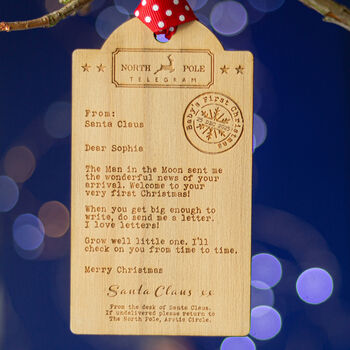 NORTH POLE
TELEGRAM
Baby's First Christmas
25 DEC 2025
From:
Santa Claus
Dear Sophia
The Man in the Moon sent me
the wonderful news of your
arrival. Welcome to your
very first Christmas!
When you get big enough to
write, do send me a letter.
I love letters!
Grow well little one. I'll
check on you from time to time.
Merry Christmas
Santa Claus xx
From the desk of Santa Claus.
If undelivered please return to
The North Pole, Arctic Circle.